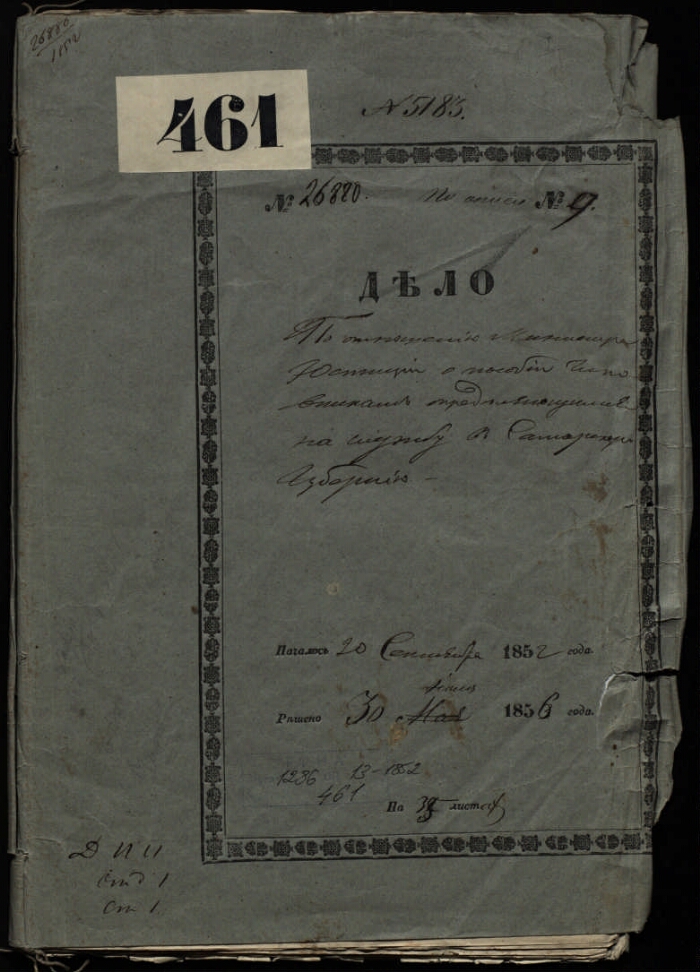 26880
1852
461
N 5183.
№ 26880. По описи № 9.
ДѢЛО
По отношенію Министра
Юстиціи о пособіи Чино
вникамъ опредѣляющимся
на службу в Самарскую
Губернію –
Началось 20 Сентября 1852 года.
Іюня
Рѣшено 30 Мая 1856 года.
1286 13-1852
461
На листахъ
Д П И
отд 1
ст 1